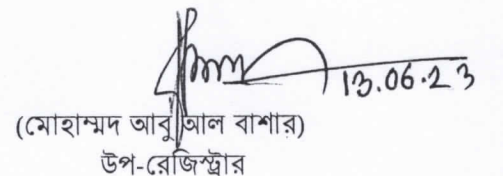 13.06.23
(মোহাম্মদ আবু আল বাশার)
উপ-রেজিস্ট্রার